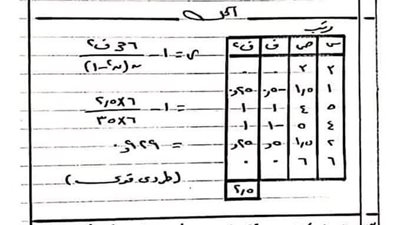 الحل
رتب
س ص ف ف٢
٣ ٣ ٠ ٠
١ ١,٥ -٠,٥ ٠,٢٥
٥ ٤ ١ ١
٤ ٥ -١ ١
٢ ١,٥ ٠,٥ ٠,٢٥
٦ ٦ ٠ ٠
٢,٥
ر = ١ - ٦ مجـ ف٢ / ن(ن٢-١)
١ - ٦×٢,٥ / ٦×٣٥
= ٠,٩٢٩
(طردي قوي)